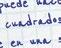 puede hace
cuadrados
e en una s